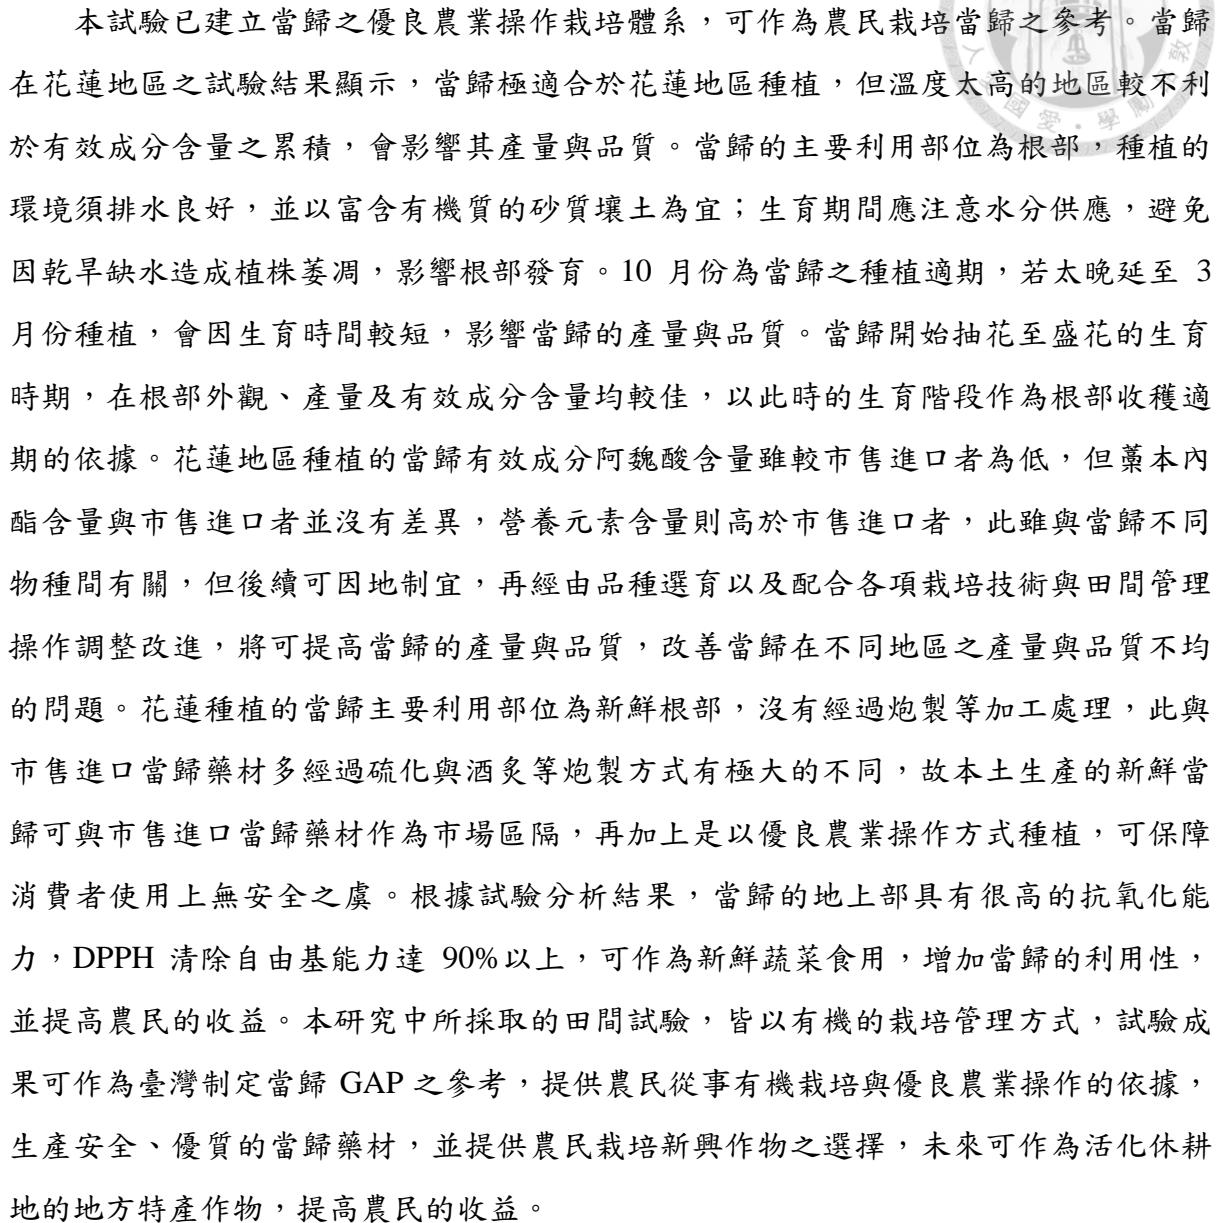 本試驗已建立當歸之優良農業操作栽培體系，可作為農民栽培當歸之參考。當歸
在花蓮地區之試驗結果顯示，當歸極適合於花蓮地區種植，但溫度太高的地區較不利
於有效成分含量之累積，會影響其產量與品質。當歸的主要利用部位為根部，種植的
環境須排水良好，並以富含有機質的砂質壤土為宜；生育期間應注意水分供應，避免
因乾旱缺水造成植株萎凋，影響根部發育。10 月份為當歸之種植適期，若太晚延至 3
月份種植，會因生育時間較短，影響當歸的產量與品質。當歸開始抽花至盛花的生育
時期，在根部外觀、產量及有效成分含量均較佳，以此時的生育階段作為根部收穫適
期的依據。花蓮地區種植的當歸有效成分阿魏酸含量雖較市售進口者為低，但藁本內
酯含量與市售進口者並沒有差異，營養元素含量則高於市售進口者，此雖與當歸不同
物種間有關，但後續可因地制宜，再經由品種選育以及配合各項栽培技術與田間管理
操作調整改進，將可提高當歸的產量與品質，改善當歸在不同地區之產量與品質不均
的問題。花蓮種植的當歸主要利用部位為新鮮根部，沒有經過炮製等加工處理，此與
市售進口當歸藥材多經過硫化與酒炙等炮製方式有極大的不同，故本土生產的新鮮當
歸可與市售進口當歸藥材作為市場區隔，再加上是以優良農業操作方式種植，可保障
消費者使用上無安全之虞。根據試驗分析結果，當歸的地上部具有很高的抗氧化能
力，DPPH 清除自由基能力達 90%以上，可作為新鮮蔬菜食用，增加當歸的利用性，
並提高農民的收益。本研究中所採取的田間試驗，皆以有機的栽培管理方式，試驗成
果可作為臺灣制定當歸 GAP 之參考，提供農民從事有機栽培與優良農業操作的依據，
生產安全、優質的當歸藥材，並提供農民栽培新興作物之選擇，未來可作為活化休耕
地的地方特產作物，提高農民的收益。